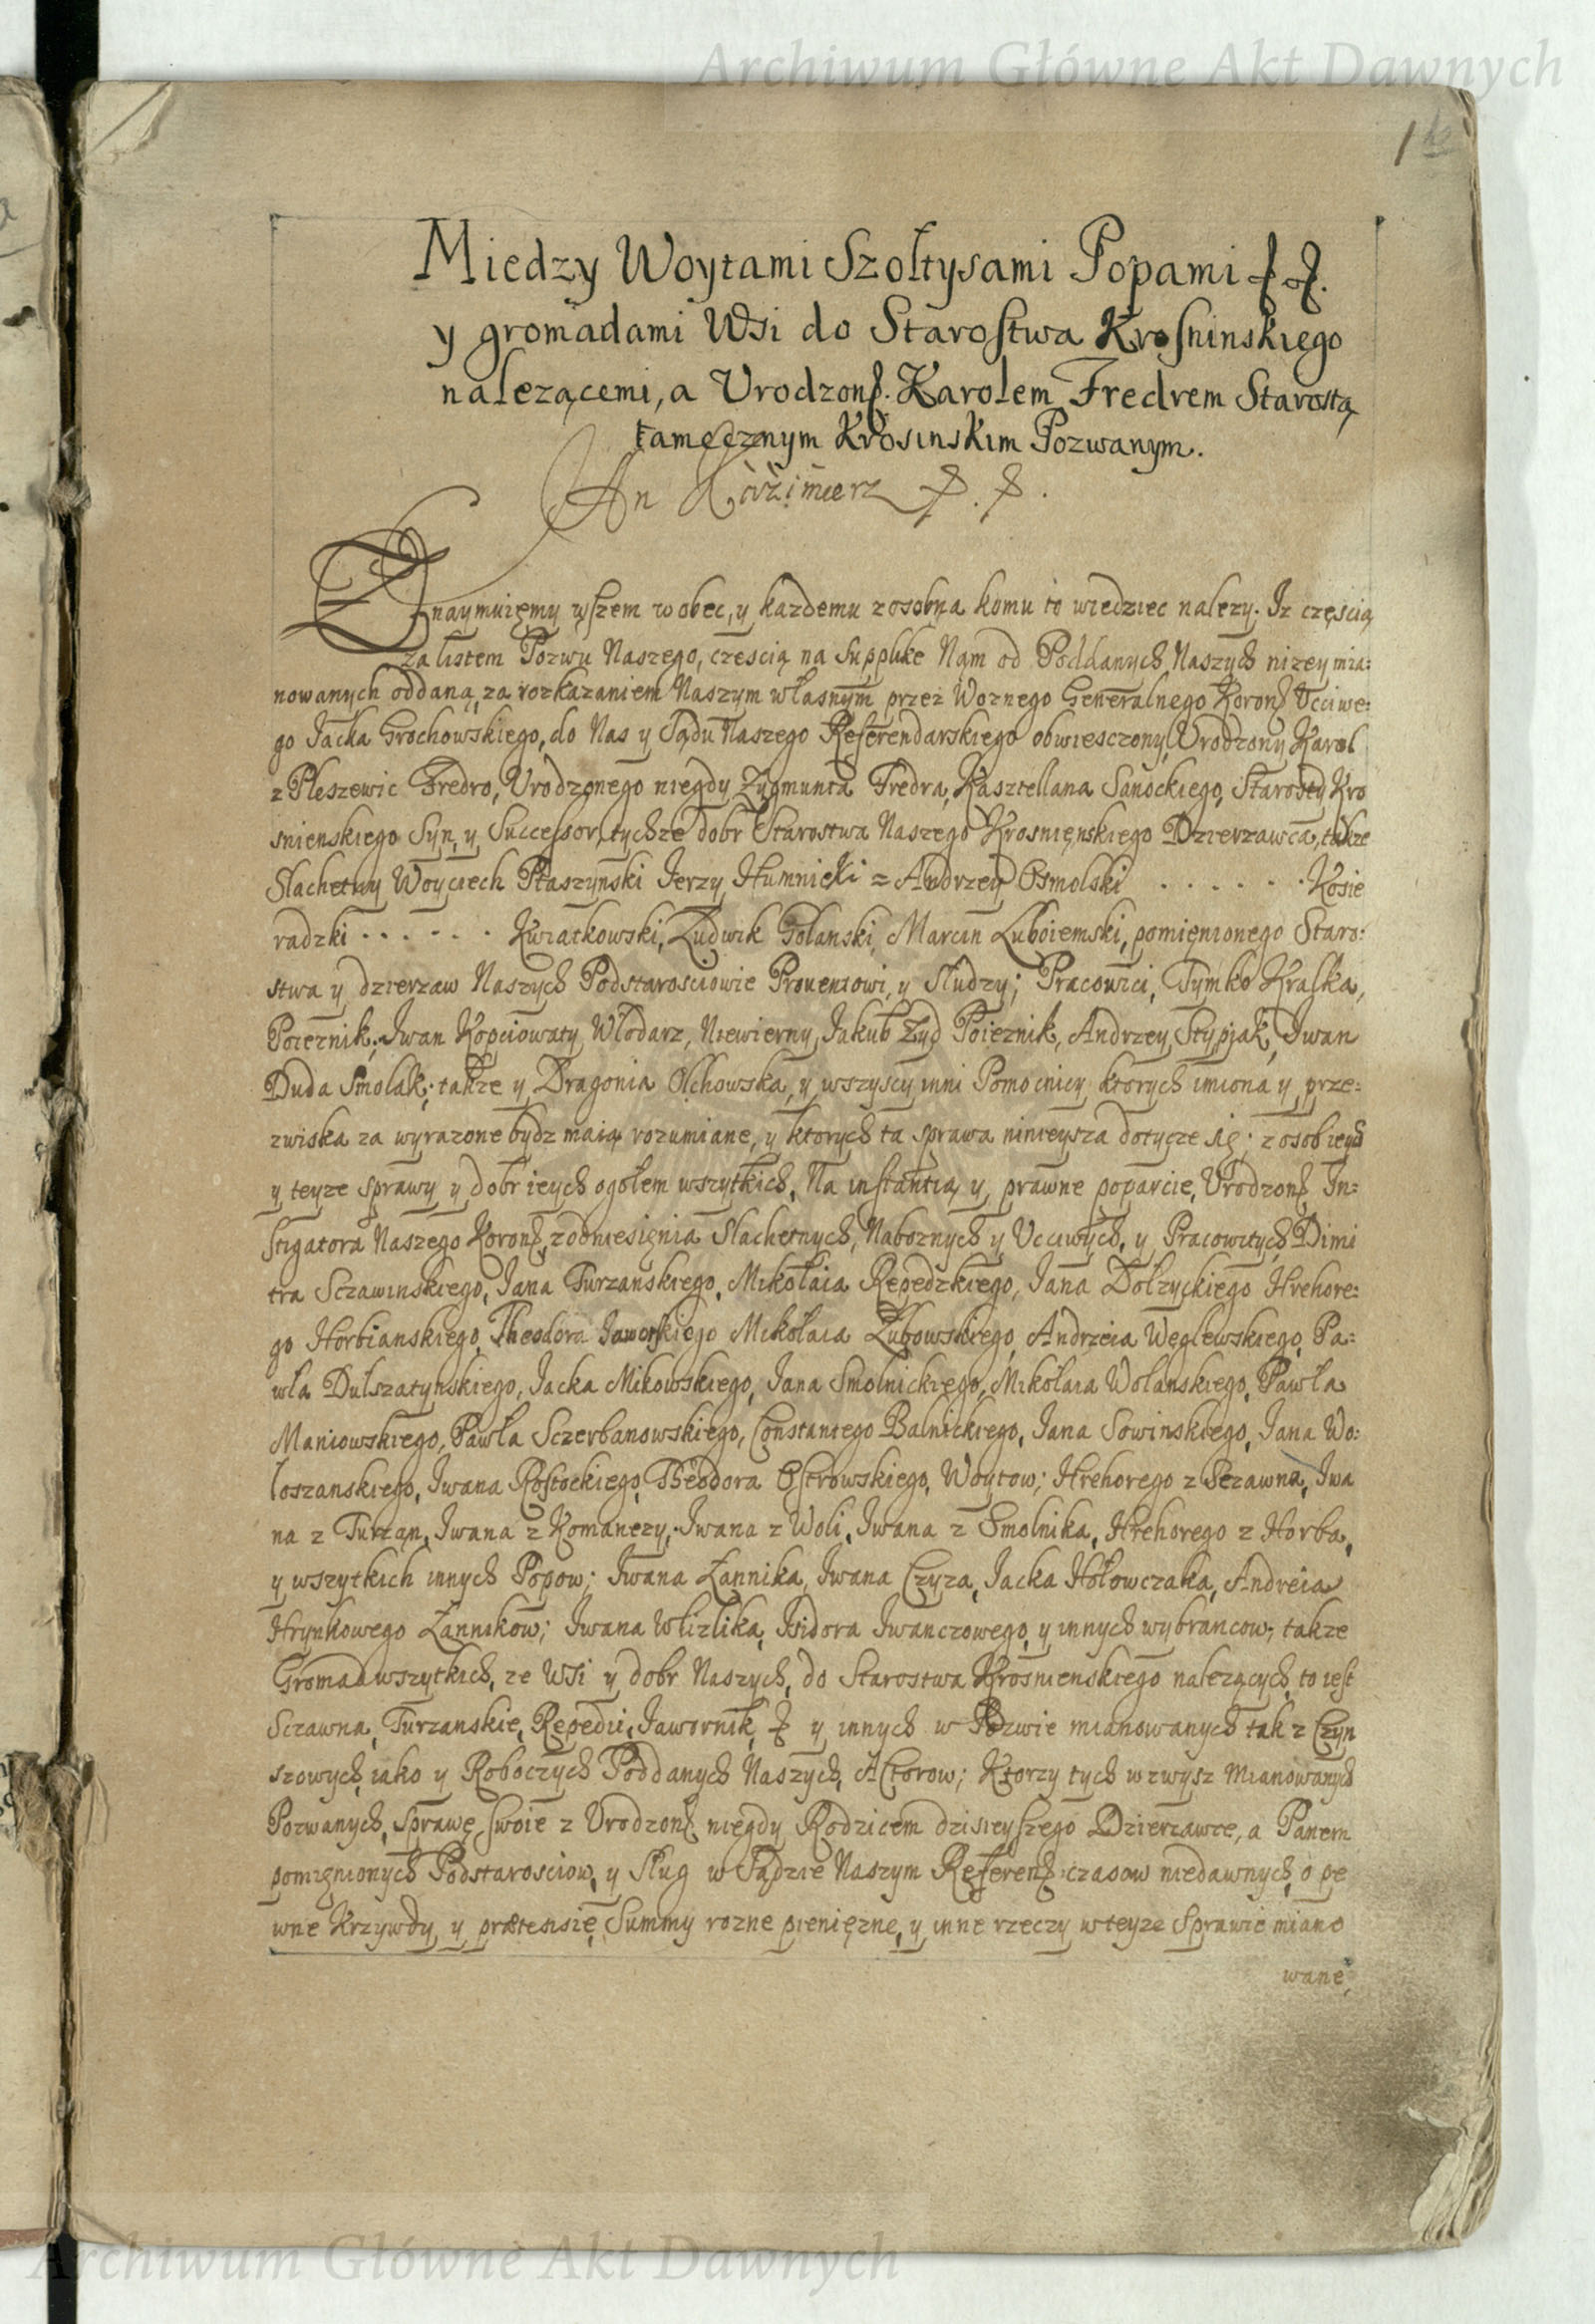 Archiwum Główne Akt Dawnych
1
Miedzy Woytami Szołtysami Popami
y gromadami Wsi do Starostwa Krosninskiego
nalezącemi, a Urodzon. Karolem Fredrem Starostą
tamecznym Krosinskim Pozwanym.
Jan Kazimierz
Znaymuiemy wszem wobec, y kazdemu zosobna komu to wiedziec nalezy. Iz częscią
za listem Pozwu Naszego, czescią na Supplike Nam od Poddanych Naszych nizey mia:
nowanych oddaną, za rozkazaniem Naszym własnym przez Woznego Generalnego Koron Ucciwe:
go Jacka Grochowskiego, do Nas y Sądu Naszego Referendarskiego obwiesczony, Urodzony Karol
z Pleszewic Fredro, Urodzonego niegdy Zygmunta Fredra, Kasztellana Sanockiego, Starosty Kro
snienskiego Syn, y Successor, tychze dobr Starostwa Naszego Krosnięnskiego Dzierzawca, takze
Slachetny Woyciech Ptaszynski Jerzy Humnicki = Andrzey Osmolski . . . . . . . Kosie
radzki . . . . . . Kwiatkowski, Ludwik Golanski, Marcin Luboiemski, pomięnionego Staro:
stwa y dzierzaw Naszych Podstarosciowie Prowentowi, y Słudzy; Pracowici, Tymko Kraska,
Poieznik, Jwan Kopciowaty Włodarz, Niewierny, Jakub Zyd Poieznik, Andrzey Stypjak, Jwan
Duda Smolak; takze y Dragonia Olchowska, y wszyscy inni Pomocnicy, ktorych imiona y prze:
zwiska za wyrazone bydz maią rozumiane, y ktorych ta sprawa ninieysza dotycze się; z osob ieych
y teyze sprawy y dobr ieych ogołem wszytkich, Na instantią y prawne poparcie, Urodzon Jn:
stigatora Naszego Koron, zodniesięnia Slachetnych, Naboznych y Uccwiych, y Pracowitych Dimi
tra Sczawinskiego, Jana Turzanskiego, Mikołaia Repedzkiego, Jana Dolzyckiego Hrehore:
go Horbianskiego, Theodora Jaworskiego Mikołaia Łubowskiego, Andrzeia Węglewskiego, Pa:
wła Dulszatynskiego, Jacka Mikowskiego, Jana Smolnickiego, Mikołaia Wolanskiego, Pawła
Maniowskiego, Pawła Sczerbanowskiego, Constantego Balnickiego, Jana Sowinskiego, Jana Wo:
łoszanskiego, Jwana Rostockiego, Theodora Ostrowskiego, Woytow; Hrehorego z Sczawna, Jwa
na z Turzan, Jwana z Komanczy, Jwana z Woli, Jwana z Smolnika, Hrehorego z Horba,
y wszytkich innych Popow; Jwana Łannika, Jwana Czyza, Jacka Hołowczaka, Andreia
Hrynkowego Łannikow; Jwana Wlizlika, Jsidora Jwanczowego, y innych wybrancow; takze
Gromad wszytkich, ze Wsi y dobr Naszych, do Starostwa Krosnienskiego nalezących, to iest
Sczawna, Turzanskie, Repedii, Jawornik, y innych w Pozwie mianowanych tak z Czyn
szowych, iako y Roboczych Poddanych Naszych, Actorow; Ktorzy tych wzwysz Mianowanych
Pozwanych, sprawę swoie z Urodzon niegdy Rodzicem dzisieyszego Dzierzawce, a Panem
pomięnionych Podstarosciow, y Sług w Sądzie Naszym Referen czasow niedawnych, o pe
wne Krzywdy, y prætensię, Summy rozne pienięzne, y inne rzeczy w teyze Sprawie miano
wane,
Archiwum Główne Akt Dawnych